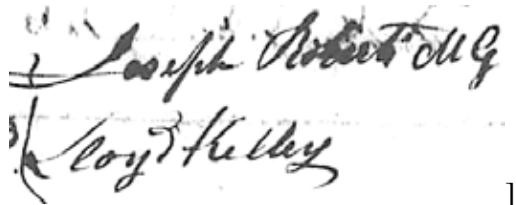 Joseph Roberts MG
Lloyd Kelley
]